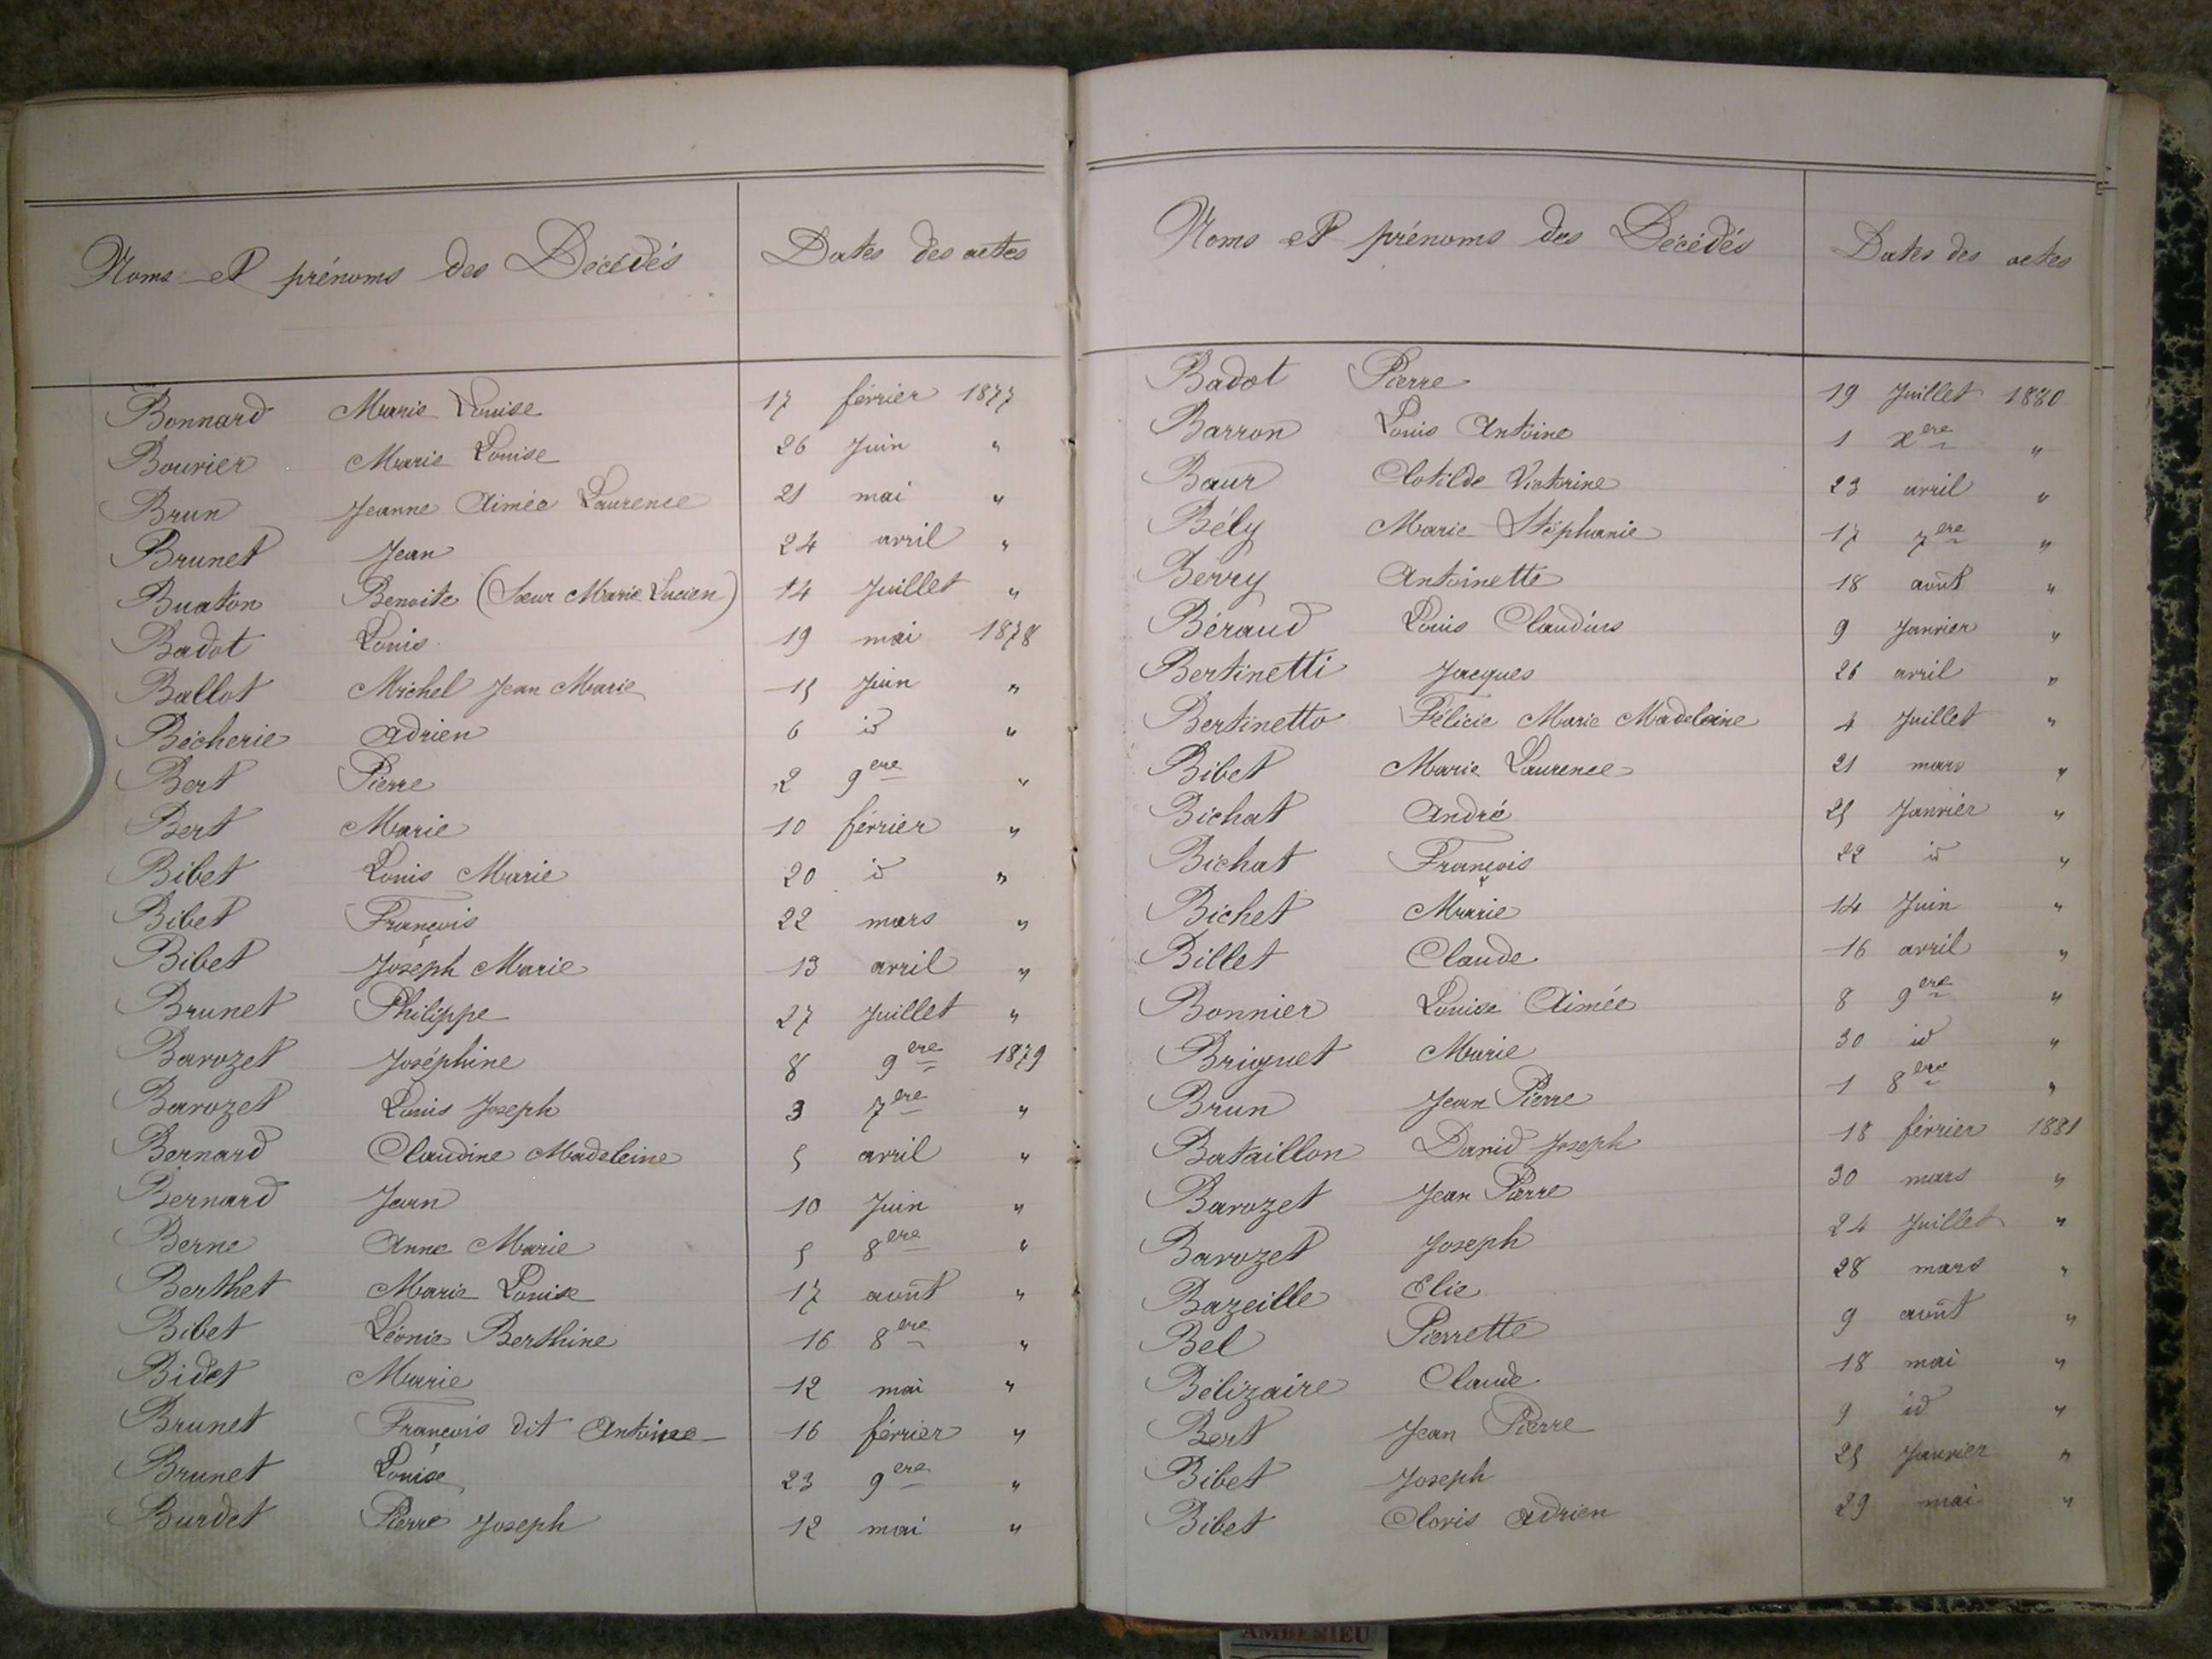 Noms et prénoms des Décédés Dates des actes
Bonnard Marie Louise 17 février 1877
Bouvier Marie Louise 26 Juin "
Brun Jeanne Aimée Laurence 21 mai "
Brunet Jean 24 avril "
Buaton Benoite (Sœur Marie Lucien) 14 Juillet "
Badot Louis 19 mai 1878
Ballot Michel Jean Marie 15 Juin "
Bécherie Adrien 6 id "
Bert Pierre 2 9ere "
Bert Marie 10 février "
Bibet Louis Marie 20 id "
Bibet François 22 mars "
Bibet Joseph Marie 13 avril "
Brunet Philippe 27 Juillet "
Barozet Joséphine 8 9ere 1879
Barozet Louis Joseph 3 7ere "
Bernard Claudine Madeleine 5 avril "
Bernard Jean 10 Juin "
Berne Anne Marie 5 8ere "
Berthet Marie Louise 17 août "
Bibet Léonie Berthine 16 8ere "
Bidet Marie 12 mai "
Brunet François dit Antoine 16 février "
Brunet Louise 23 9ere "
Burdet Pierre Joseph 12 mai "
Noms et prénoms des Décédés Dates des actes
Badot Pierre 19 Juillet 1880
Barron Louis Antoine 1 xere "
Baur Clotilde Victorine 23 avril "
Bély Marie Stéphanie 17 7ere "
Berry Antoinette 18 août "
Béraud Louis Claudius 9 Janvier "
Bertinetti Jacques 26 avril "
Bertinetto Félicie Marie Madeleine 4 Juillet "
Bibet Marie Laurence 21 mars "
Bichat André 25 Janvier "
Bichat François 22 id "
Bichet Marie 14 Juin "
Billet Claude 16 avril "
Bonnier Louise Aimée 8 9ere "
Briguet Marie 30 id "
Brun Jean Pierre 1 8ere "
Bataillon David Joseph 18 février 1881
Barozet Jean Pierre 30 mars "
Barozet Joseph 24 Juillet "
Bazeille Elie 28 mars "
Bel Pierrette 9 août "
Bélizaire Claude 18 mai "
Bert Jean Pierre 9 id "
Bibet Joseph 25 Janvier "
Bibet Clovis Adrien 29 mai "